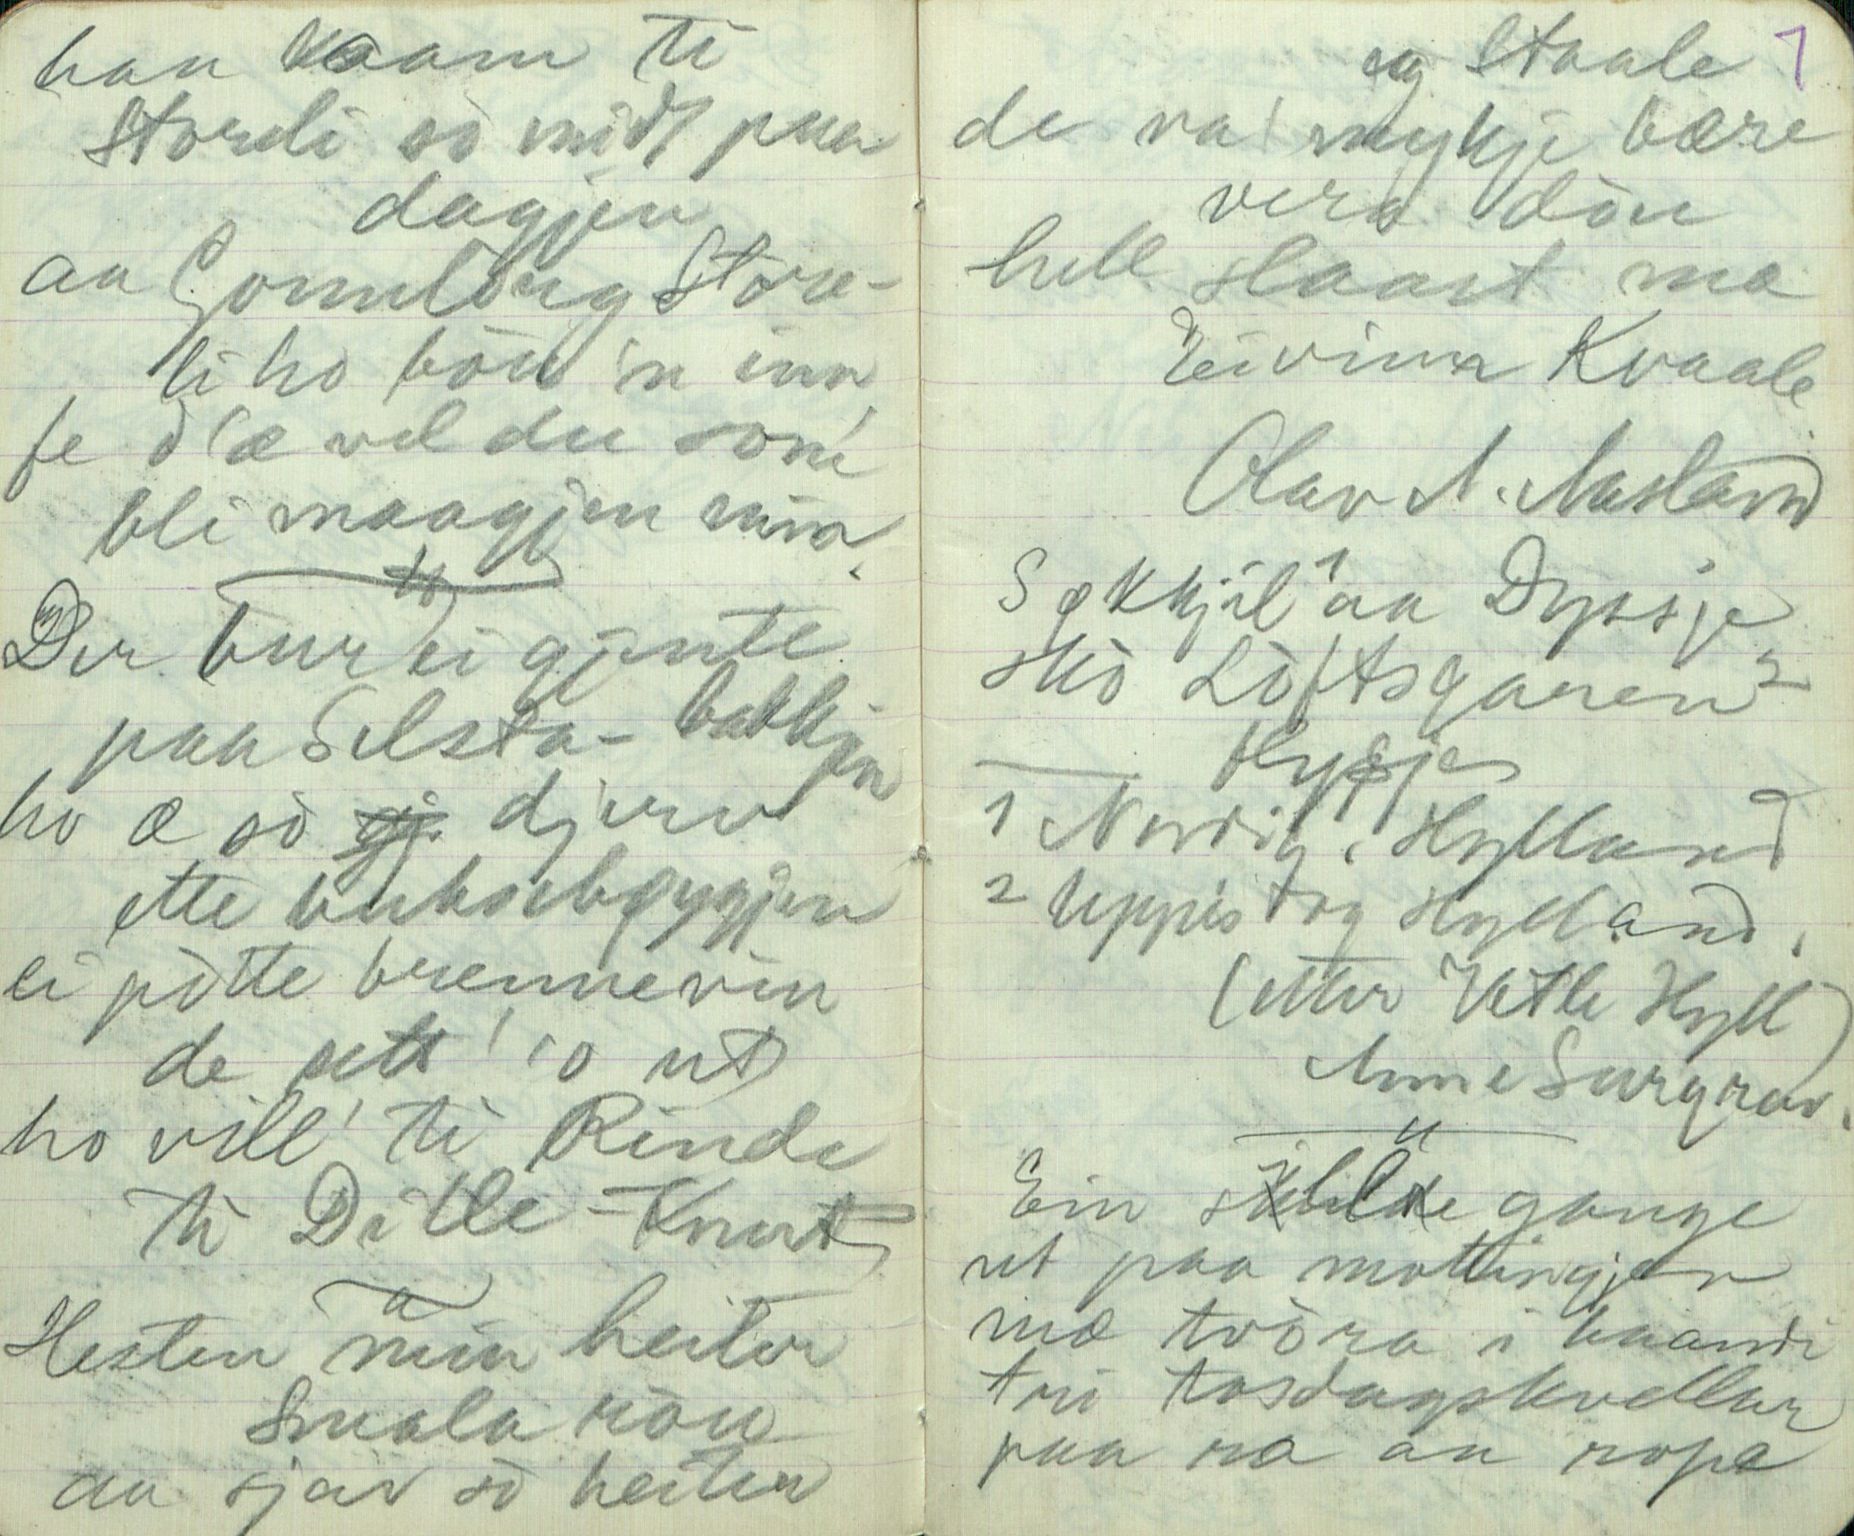 han kaam ti
Stordi so midt paa
dagjen
aa Gonnlòug Store-
li ho bòu 'n inn
fe d'æ vel du som'
bli maagjen min.
Der bur ei gjente
paa Selsta-bakkjen
ho æ so djerv
ette buksebyggjen
ei pòtte brennevin
de sett' 'o ut
ho vill' ti Rinde
ti Ditle-Knut
Hesten min heiter
Smala ròu
aa sjav so heiter
eg Staale
de va' mykje bære
vera dòu
hell slaast mæ
Eivinn Kvaale
Olav N. Aasland
Søkkjil 1 aa Dyssje
skò Lòftsgaren 2
Hyssje
1 Nordig. Hylland
2 Uppistog Hylland.
(etter Vetle Hyll)
Anne Surgrav.
Ein skulde gange
ut paa mottingjen
mæ tvòra i haandi
tri tosdagskvellar
paa ra aa ropa